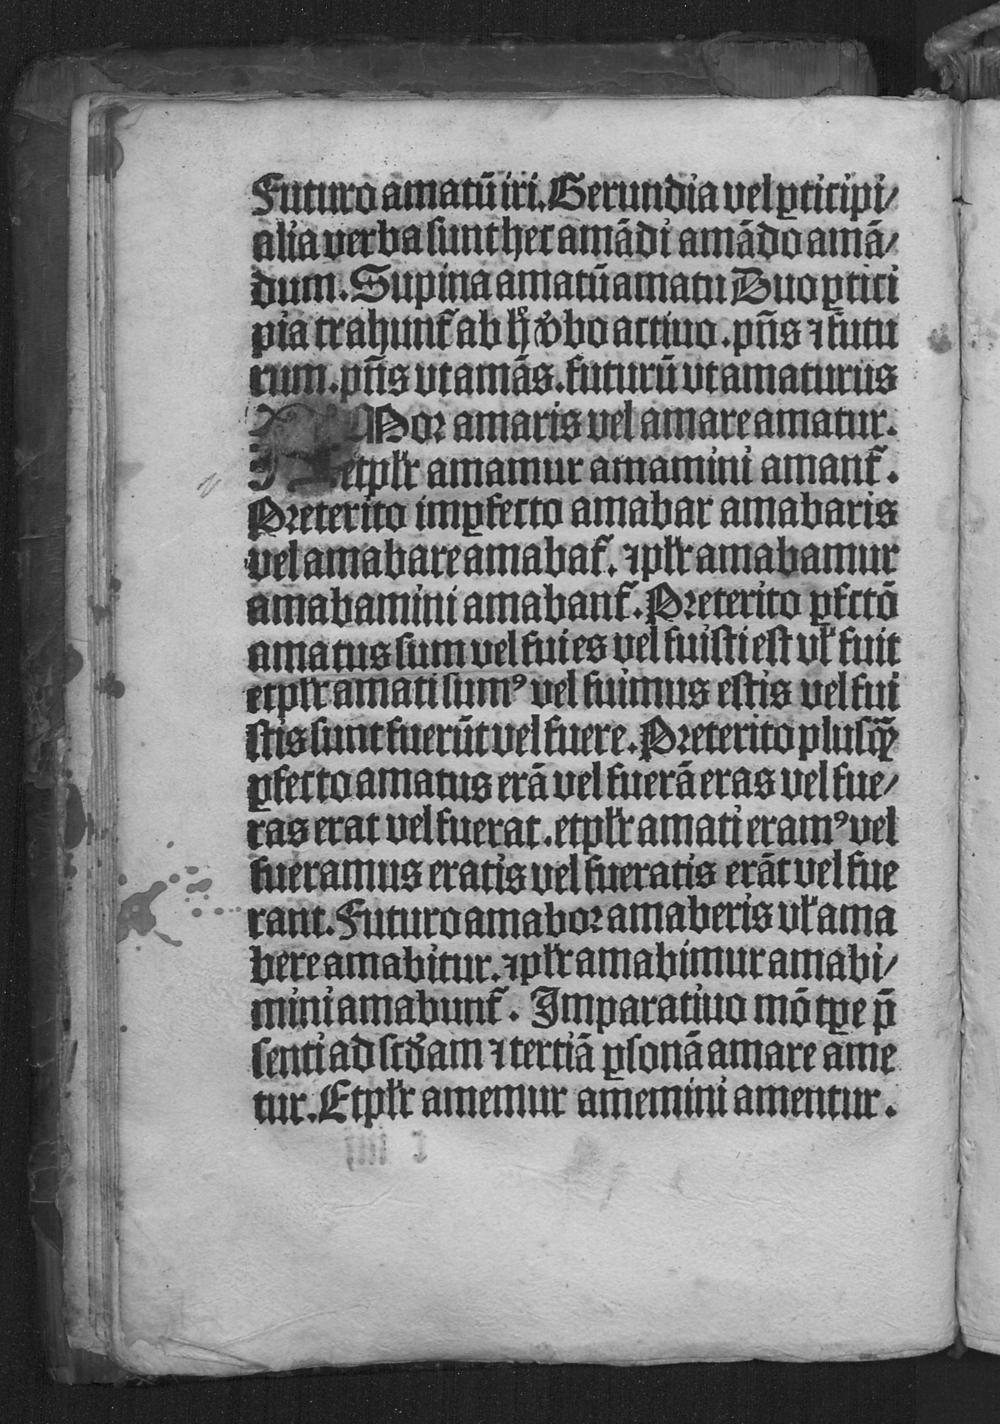 Futuro amatū iri. Gerundia vel ꝑticipi/
alia verba sunt hec amādi amādo amā/
dum. Supina amatū amatu Duo ꝑtici
pia trahunt᷑ ab hͦ ꝟbo actiuo. pn̄s ⁊ futu
rum. pn̄s vt amās. futurū vt amaturus
AMor amaris vel amare amatur.
et plr̄ amamur amamini amant᷑.
Preterito imꝑfecto amabar amabaris
vel amabare amabat᷑. ⁊ plr̄ amabamur
amabamini amabant᷑. Preterito ꝑfctō
amatus sum vel fui es vel fuisti est vl̄ fuit
et plr̄ amati sumꝰ vel fuimus estis vel fui
stis sunt fuerūt vel fuere. Preterito plusqꝫ
ꝑfecto amatus erā vel fuerā eras vel fue/
ras erat vel fuerat. et plr̄ amati eramꝰ vel
fueramus eratis vel fueratis erāt vel fue
rant. Futuro amabor amaberis vl̄ ama
bere amabitur. ⁊ plr̄ amabimur amabi/
mini amabunt᷑. Imparatiuo mō tꝑe p̄
senti ad scd̄am ⁊ tertiā ꝑsonā amare ame
tur. Et plr̄ amemur amemini amentur.